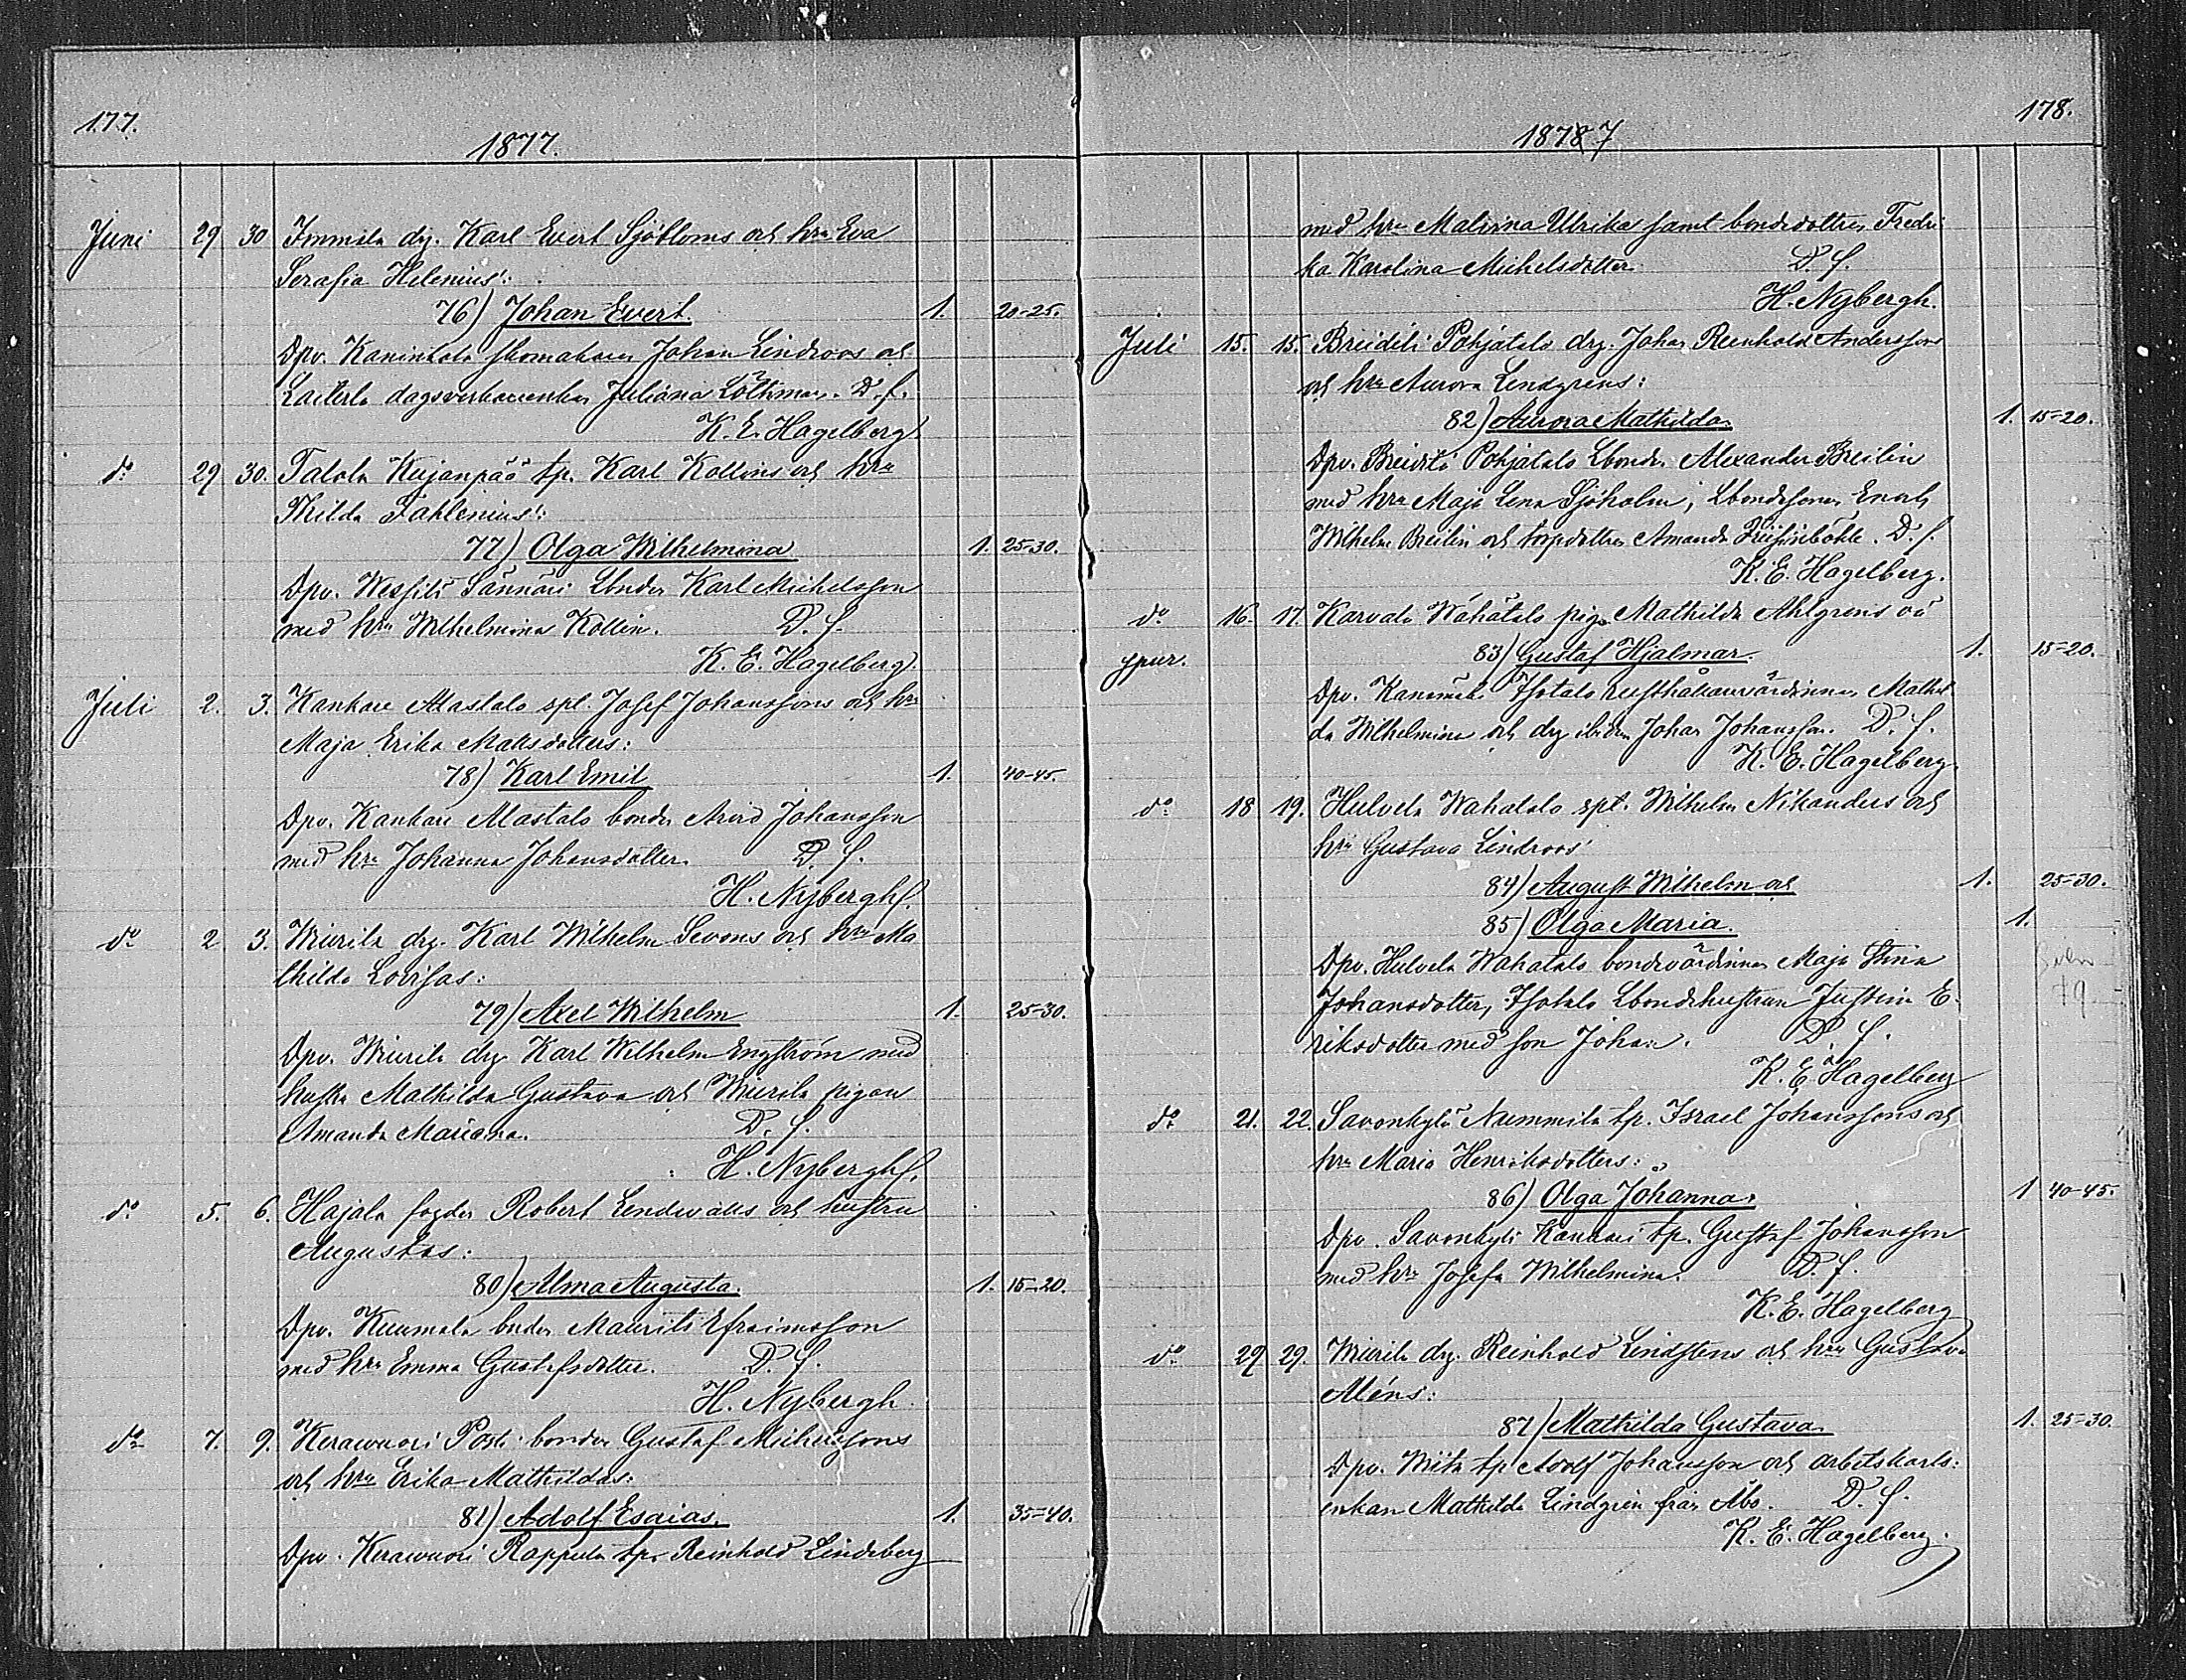 177.
1877.
Juni 29 30 Immila drg. Karl Evert Sjöbloms och hru Eva
Serafia Helenius':
76) Johan Evert. 1. 20-25.
Dpv. skomakaren Johan Lindroos och
dagsverkarenkan Juliana Löthman. D. f.
K. E. Hagelberg.
do 29 30. Talola Kujanpää tp. Karl Kollins och hru
Thilda Fahlenius':
77) Olga Wilhelmina 1. 25-30.
Dpv. Sännäri Lbonden Karl Michelsson
med hru Wilhelmina Kollin. D. f.
K. E. Hagelberg.
Juli 2. 3. Kankare Mastalo spl. Josef Johanssons och hru
Maja Erika Mattsdotters:
78) Karl Emil 1. 40-45.
Dpv. Kankare Mastalo bonden Arvid Johansson
med hru Johanna Johansdotter. D. f.
H. Nybergh.
do 2 3. Wiurila drg. Karl Wilhelm Sevons och hru Ma
thilda Lovisas:
79) Axel Wilhelm 1. 25-30.
Dpv. Wiurila drg Karl Wilhelm Engström med
hustru Mathilda Gustava och Wiurila pigan
Amanda Mariana. D. f.
H. Nybergh.
do 5. 6. Hajala fogden Robert Lindwalls och hustru
Augustas:
80) Alma Augusta. 1. 15-20.
Dpv. Kuumala bonden Maurits Efraimsson
med hru Emma Gustafsdotter. D. f.
H. Nybergh.
do 7. 9. Kerawuori Posti bonden Gustaf Michelssons
och hru Erika Mathildas:
81) Adolf Esaias. 1. 35-40.
Dpv. Kerawuori Rappula tp. Reinhold Lindeberg
178.
18787
med hru Malvina Ulrika samt bondedottren Fredri
ka Karolina Michelsdotter. D. f.
H. Nybergh.
Juli 15. 15. Breidilä Pohjatalo drg. Johan Reinhold Anderssons
och hru Aurora Lindgrens:
82) Aurora Mathilda. 1. 15-20.
Dpv. Breidilä Pohjatalo Lbonden Alexander Breilin
med hru Maja Lena Sjöholm, Lbondesonen Enock
Wilhelm Breilin och torpdottren Amanda D. f.
K. E. Hagelberg.
do 16. 17. Karvala Wähätalo pigan Mathilda Ahlgrens oä
spur. 83) Gustaf Hjalmar. 1. 15-20.
Dpv. Isotalo rusthållarevärdinnan Mathil
da Wilhelmina och drg ibidem Johan Johansson. D. f.
K. E. Hagelberg.
do 18 19. Hulvela Wahatalo spl. Wilhelm Nikanders och
hru Gustava Lindroos'
84) August Wilhelm och 1. 25-30.
85) Olga Maria. 1.
Dpv. Hulvela Wahatalo bondevärdinnan Maja Stina
Johansdotter, Isotalo Lbondehustrun Justina E-
riksdotter med son Johan. D. f.
K. E. Hagelberg
do 21. 22. Savonkylä Nummila tp. Israel Johanssons och
hru Maria Henriksdotters:
86) Olga Johanna. 1 40-45.
Dpv. Savonkylä tp. Gustaf Johansson
med hru Josefa Wilhelmina. D. f.
K. E. Hagelberg
do 29 29. Wiurila drg. Reinhold Lindstens och hru Gustava
Aléns:
87) Mathilda Gustava. 1. 25-30.
Dpv. tp Adolf Johansson och arbetskarls-
enkan Mathilda Lindgrén från Åbo. D. f.
K. E. Hagelberg.